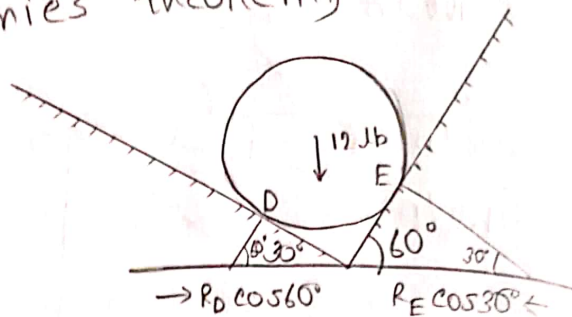 nies theorem)
12 lb
E
D
60° 30° 60° 30°
→ RD cos60° RE cos30° ←